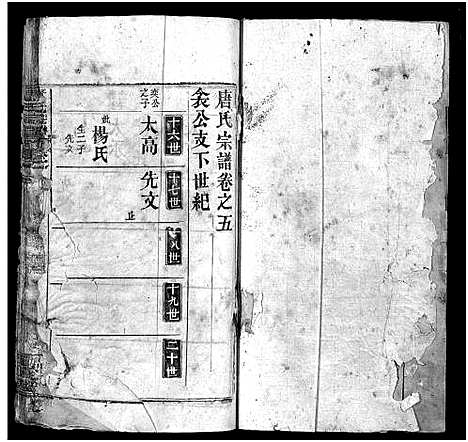 唐氏宗譜卷之五
衾公支下世紀
十六世
十七世
十八世
十九世
二十世
奕公之子
太高
先文
止
妣
楊氏
生二子
先文